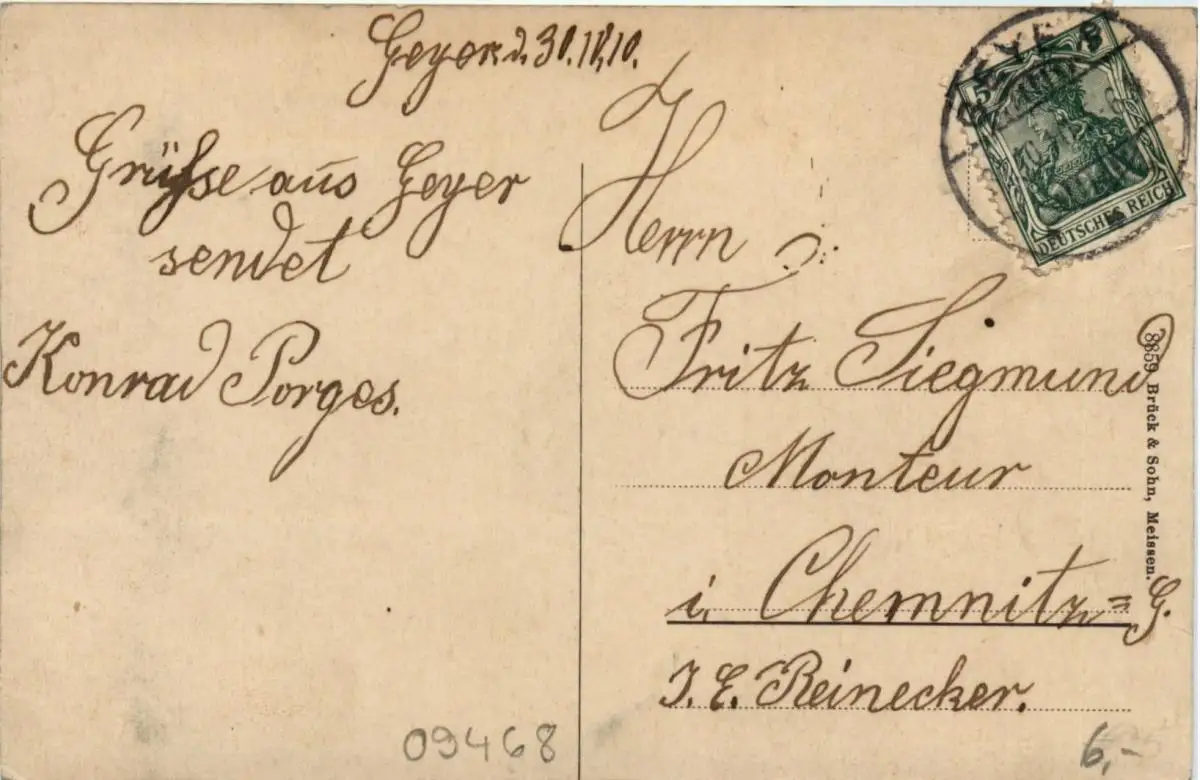 Geyer d. 30.10.10.
Grüsse aus Geyer
sendet
Konrad Porges.
Herrn
Fritz Siegmund
Monteur
i. Chemnitz=G.
J. E. Reinecker.
GEYER
5
DEUTSCHES REICH
8859 Brück & Sohn, Meissen.
09468
6,-